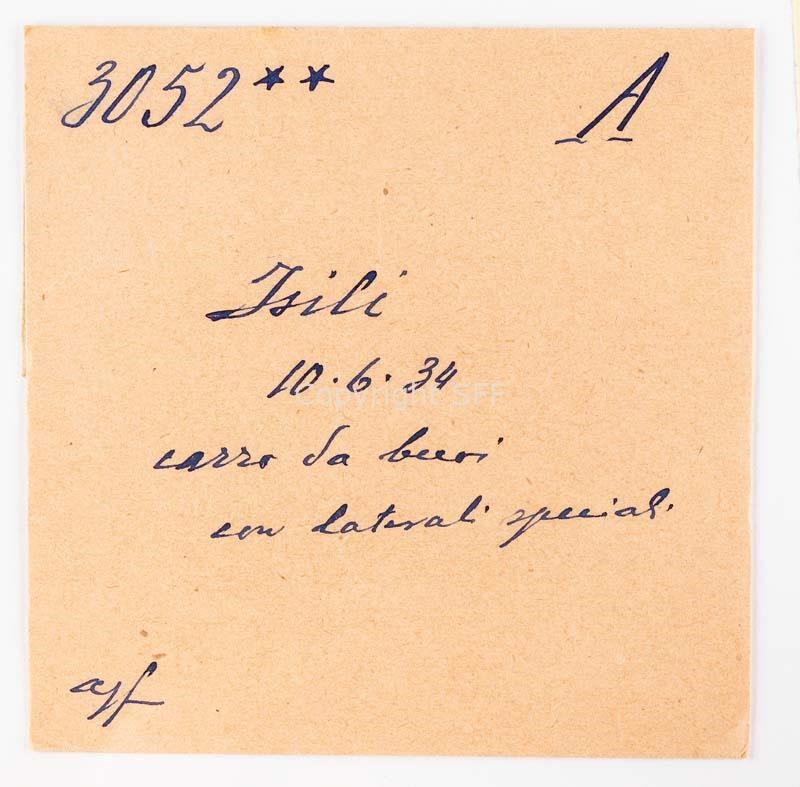 3052** A
Isili
10.6.34
Copyright SFF
carro da buoi
con laterali speciali
agf